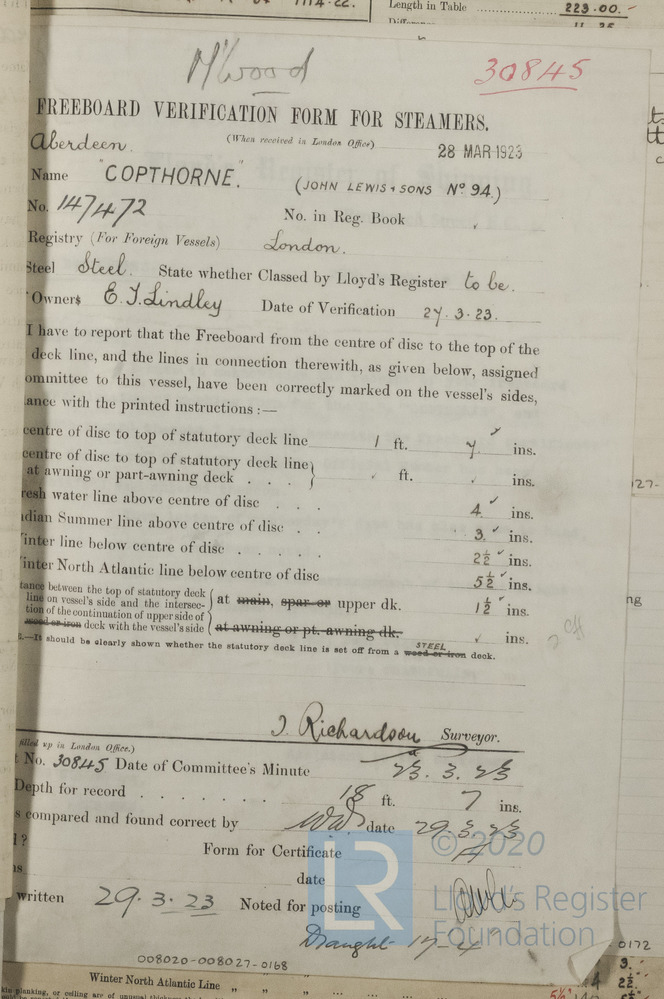 1114.22.
Length in Table 223.00.
M'Wood
30845
FREEBOARD VERIFICATION FORM FOR STEAMERS.
Aberdeen.
(When received in London Office)
28 MAR 1923
Name "COPTHORNE." (JOHN LEWIS & SONS Nº 94.)
No. 147472 No. in Reg. Book
Registry (For Foreign Vessels) London.
Steel Steel. State whether Classed by Lloyd's Register to be.
Owners E.J. Lindley Date of Verification 27.3.23.
I have to report that the Freeboard from the centre of disc to the top of the
deck line, and the lines in connection therewith, as given below, assigned
ommittee to this vessel, have been correctly marked on the vessel's sides,
ance with the printed instructions :—
centre of disc to top of statutory deck line 1 ft. 7 ins.
centre of disc to top of statutory deck line
at awning or part-awning deck . . . ft. ins.
resh water line above centre of disc . . 4 ins.
ndian Summer line above centre of disc . . 3 ins.
inter line below centre of disc . . . . . 2½ ins.
inter North Atlantic line below centre of disc 5½ ins.
tance between the top of statutory deck
line on vessel's side and the intersec- at main, spar or upper dk. 1½ ins.
tion of the continuation of upper side of
wood or iron deck with the vessel's side at awning or pt. awning dk. ins.
STEEL
.—It should be clearly shown whether the statutory deck line is set off from a wood or iron deck.
J. Richardson Surveyor.
filled up in London Office.)
t No. 30845 Date of Committee's Minute 23.3.23
Depth for record . . . . . . . 18 ft. 7 ins.
s compared and found correct by date 29.3.23
l? Form for Certificate A
ns date
written 29.3.23 Noted for posting
Draught 17-4
008020-008027-0168
© 2020
LR
Lloyd's Register
Foundation
0172
Winter North Atlantic Line " " " "
3.
2½